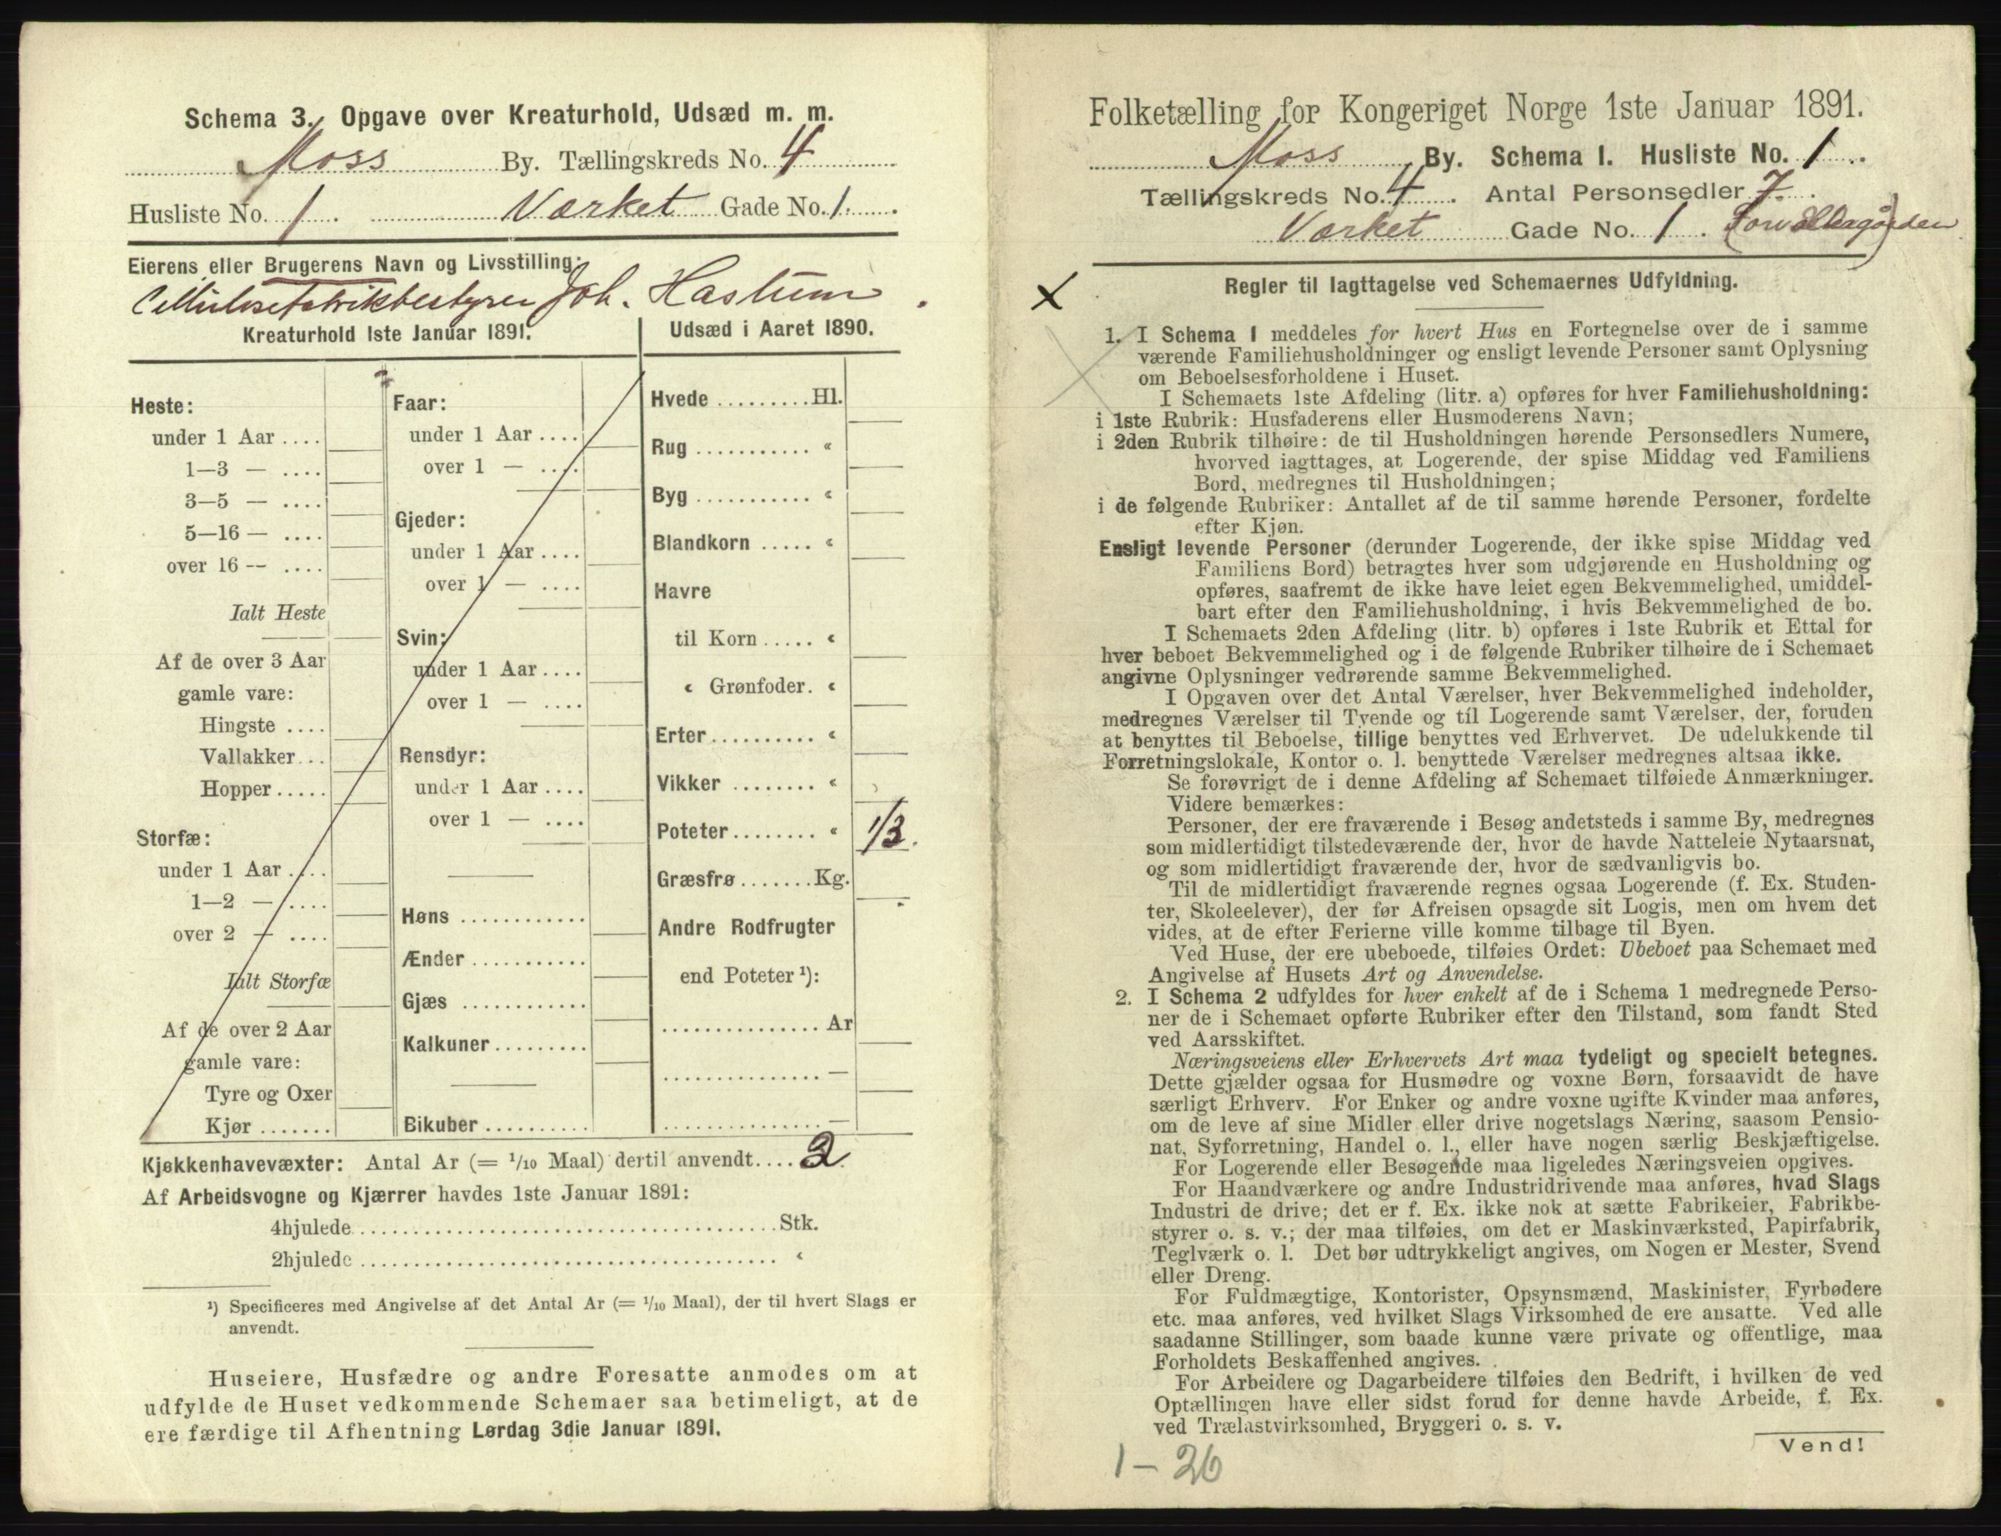 Schema 3. Opgave over Kreaturhold, Udsæd m. m.
Moss By. Tællingskreds No. 4
Husliste No. 1. Værket Gade No. 1.
Eierens eller Brugerens Navn og Livsstilling:
Cellulosefabrikbestyrer Joh. Hastum.
Kreaturhold 1ste Januar 1891.
Heste:
under 1 Aar ....
1—3 — ....
3—5 — ....
5—16 — ....
over 16 — ....
Ialt Heste
Af de over 3 Aar
gamle vare:
Hingste ....
Vallakker ...
Hopper .....
Storfæ:
under 1 Aar ....
1—2 — ....
over 2 — ....
Ialt Storfæ
Af de over 2 Aar
gamle vare:
Tyre og Oxer
Kjør .......
Faar:
under 1 Aar ....
over 1 — ....
Gjeder:
under 1 Aar ....
over 1 — ....
Svin:
under 1 Aar ....
over 1 — ....
Rensdyr:
under 1 Aar ....
over 1 — ....
Høns ............
Ænder ...........
Gjæs ............
Kalkuner .........
Bikuber ..........
Udsæd i Aaret 1890.
Hvede ......... Hl.
Rug ........... «
Byg ........... «
Blandkorn ..... «
Havre
til Korn ..... «
« Grønfoder. «
Erter .......... «
Vikker ........ «
Poteter ........ « 1/3.
Græsfrø ....... Kg.
Andre Rodfrugter
end Poteter ¹):
............... Ar
............... —
............... —
Kjøkkenhavevæxter: Antal Ar (= 1/10 Maal) dertil anvendt .... 2.
Af Arbeidsvogne og Kjærrer havdes 1ste Januar 1891:
4hjulede ........................................ Stk.
2hjulede ........................................ «
¹) Specificeres med Angivelse af det Antal Ar (= 1/10 Maal), der til hvert Slags er
anvendt.
Huseiere, Husfædre og andre Foresatte anmodes om at
udfylde de Huset vedkommende Schemaer saa betimeligt, at de
ere færdige til Afhentning Lørdag 3die Januar 1891.
Folketælling for Kongeriget Norge 1ste Januar 1891.
Moss By. Schema 1. Husliste No. 1.
Tællingskreds No. 4. Antal Personsedler 7.
Værket Gade No. 1.
Regler til Iagttagelse ved Schemaernes Udfyldning.
1. I Schema 1 meddeles for hvert Hus en Fortegnelse over de i samme
værende Familiehusholdninger og ensligt levende Personer samt Oplysning
om Beboelsesforholdene i Huset.
I Schemaets 1ste Afdeling (litr. a) opføres for hver Familiehusholdning:
i 1ste Rubrik: Husfaderens eller Husmoderens Navn;
i 2den Rubrik tilhøire: de til Husholdningen hørende Personsedlers Numere,
hvorved iagttages, at Logerende, der spise Middag ved Familiens
Bord, medregnes til Husholdningen;
i de følgende Rubriker: Antallet af de til samme hørende Personer, fordelte
efter Kjøn.
Ensligt levende Personer (derunder Logerende, der ikke spise Middag ved
Familiens Bord) betragtes hver som udgjørende en Husholdning og
opføres, saafremt de ikke have leiet egen Bekvemmelighed, umiddel-
bart efter den Familiehusholdning, i hvis Bekvemmelighed de bo.
I Schemaets 2den Afdeling (litr. b) opføres i 1ste Rubrik et Ettal for
hver beboet Bekvemmelighed og i de følgende Rubriker tilhøire de i Schemaet
angivne Oplysninger vedrørende samme Bekvemmelighed.
I Opgaven over det Antal Værelser, hver Bekvemmelighed indeholder,
medregnes Værelser til Tyende og til Logerende samt Værelser, der, foruden
at benyttes til Beboelse, tillige benyttes ved Erhvervet. De udelukkende til
Forretningslokale, Kontor o. l. benyttede Værelser medregnes altsaa ikke.
Se forøvrigt de i denne Afdeling af Schemaet tilføiede Anmærkninger.
Videre bemærkes:
Personer, der ere fraværende i Besøg andetsteds i samme By, medregnes
som midlertidigt tilstedeværende der, hvor de havde Natteleie Nytaarsnat,
og som midlertidigt fraværende der, hvor de sædvanligvis bo.
Til de midlertidigt fraværende regnes ogsaa Logerende (f. Ex. Studen-
ter, Skoleelever), der før Afreisen opsagde sit Logis, men om hvem det
vides, at de efter Ferierne ville komme tilbage til Byen.
Ved Huse, der ere ubeboede, tilføies Ordet: Ubeboet paa Schemaet med
Angivelse af Husets Art og Anvendelse.
2. I Schema 2 udfyldes for hver enkelt af de i Schema 1 medregnede Perso-
ner de i Schemaet opførte Rubriker efter den Tilstand, som fandt Sted
ved Aarsskiftet.
Næringsveiens eller Erhvervets Art maa tydeligt og specielt betegnes.
Dette gjælder ogsaa for Husmødre og voxne Børn, forsaavidt de have
særligt Erhverv. For Enker og andre voxne ugifte Kvinder maa anføres,
om de leve af sine Midler eller drive nogetslags Næring, saasom Pensio-
nat, Syforretning, Handel o. l., eller have nogen særlig Beskjæftigelse.
For Logerende eller Besøgende maa ligeledes Næringsveien opgives.
For Haandværkere og andre Industridrivende maa anføres, hvad Slags
Industri de drive; det er f. Ex. ikke nok at sætte Fabrikeier, Fabrikbe-
styrer o. s. v.; der maa tilføies, om det er Maskinværksted, Papirfabrik,
Teglværk o. l. Det bør udtrykkeligt angives, om Nogen er Mester, Svend
eller Dreng.
For Fuldmægtige, Kontorister, Opsynsmænd, Maskinister, Fyrbødere
etc. maa anføres, ved hvilket Slags Virksomhed de ere ansatte. Ved alle
saadanne Stillinger, som baade kunne være private og offentlige, maa
Forholdets Beskaffenhed angives.
For Arbeidere og Dagarbeidere tilføies den Bedrift, i hvilken de ved
Optællingen have eller sidst forud for denne havde Arbeide, f. Ex.
ved Trælastvirksomhed, Bryggeri o. s. v.
Vend!
1 – 26